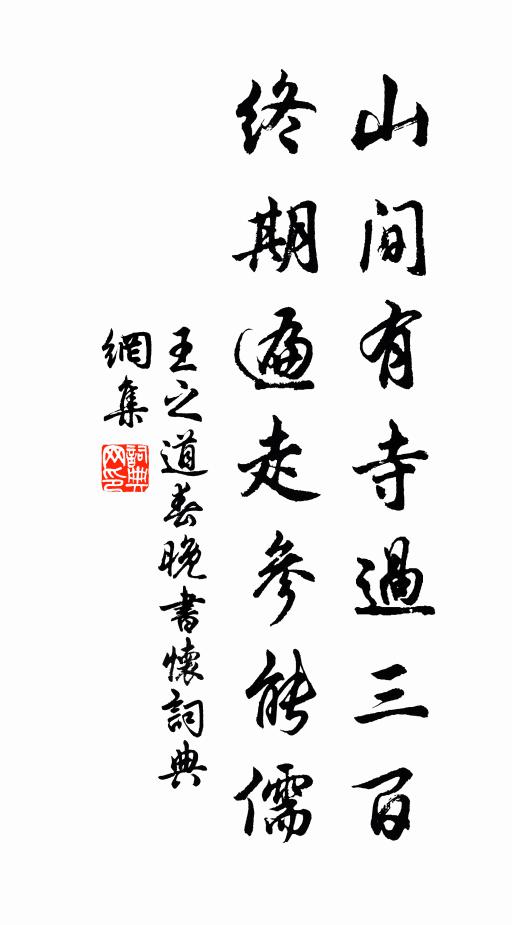 山間有寺過三百
終期遍走參能儒
王之道春晚書懷詞典
網集
詞典網印